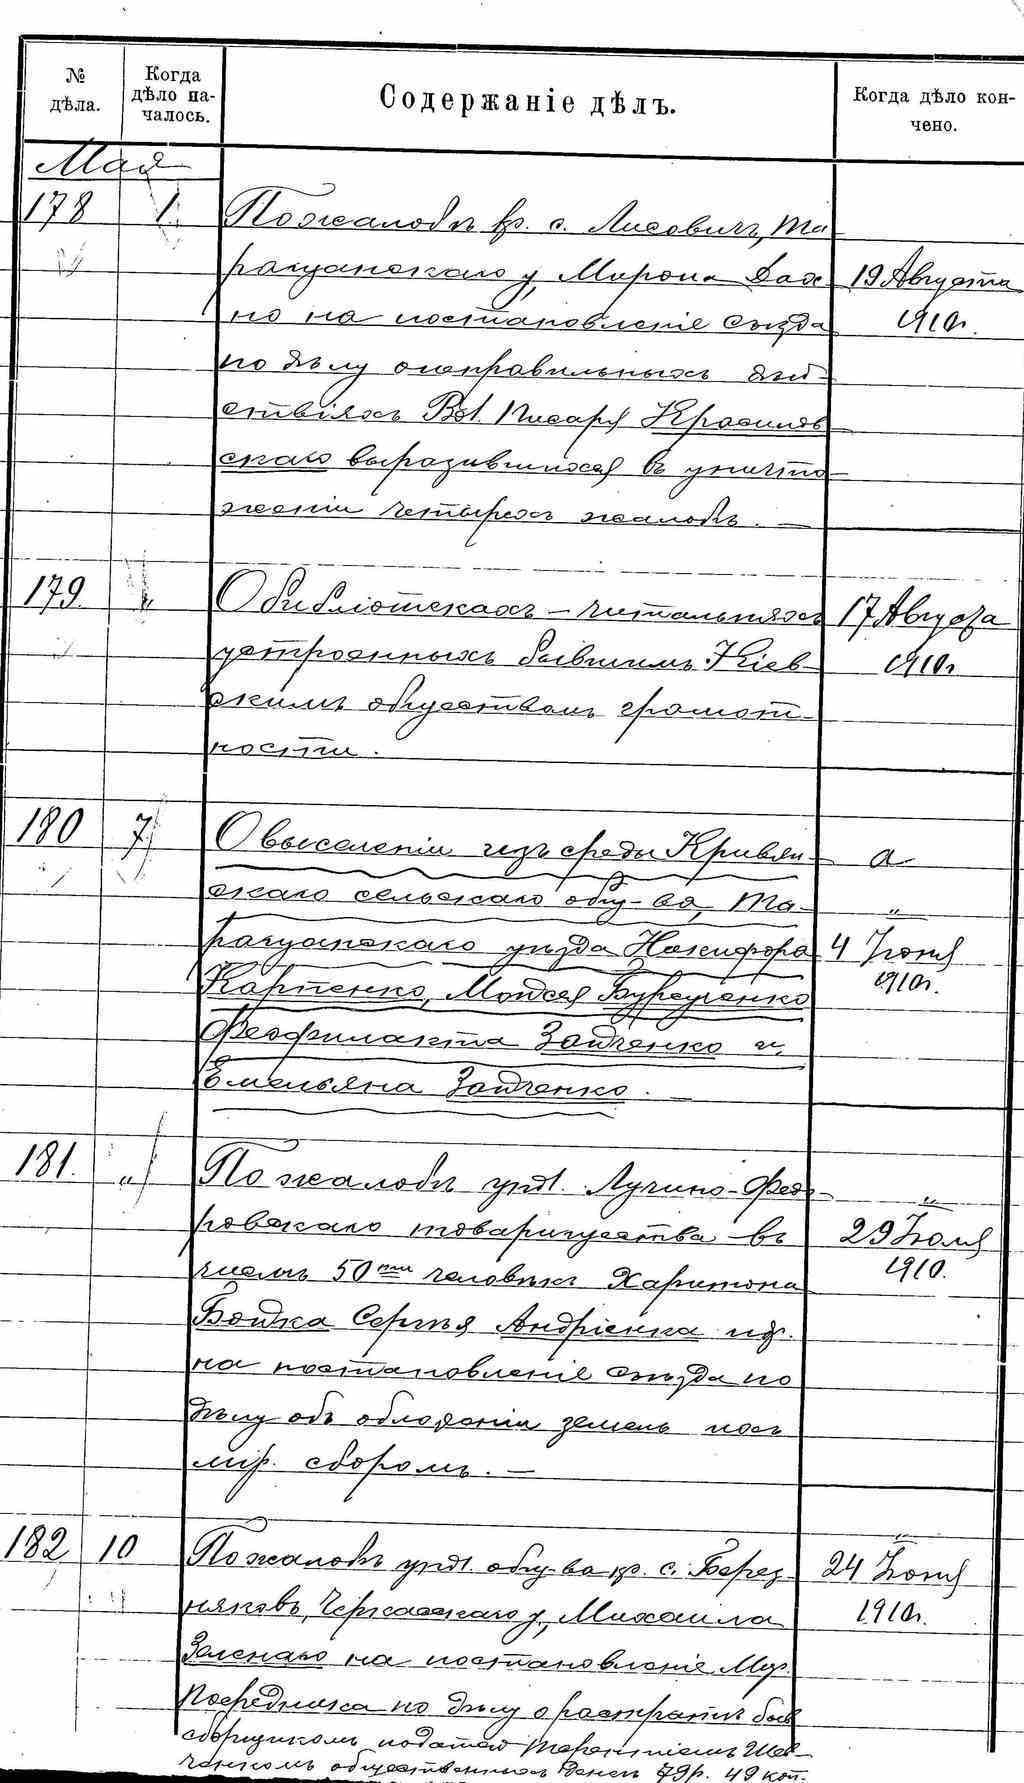 № дѣла.
Когда дѣло началось.
Содержаніе дѣлъ.
Когда дѣло кончено.
Мая
178 1 По жалобѣ кр. с. Лисовичъ, Та-
ращанскаго у, Мирона Дах- 19 Августа
но на постановленіе съѣзда 1910г.
по дѣлу о неправильныхъ дѣй-
ствіяхъ Вол. Писаря Красилов-
скаго выразившихся въ уничто-
женіи четырехъ жалобъ. —
179. „ О библіотекахъ-читальняхъ 17 Августа
устроенныхъ бывшимъ Кіев- 1910г
скимъ обществомъ грамот-
ности.
180 7 О выселеніи изъ среды Кривян- а
скаго сельскаго общ-ва, Та- „
ращанскаго уѣзда Никифора 4 Іюня
Карпенко, Мойсея Бурсученко 1910г.
Феофилакта Зайченко и
Емельяна Зайченко. —
181. „ По жалобѣ упол. Лучино-Федо- „
ровскаго товарищества въ 29 Іюля
числѣ 50ти человѣкъ Харитона 1910.
Бойка Сергѣя Андріенка и др.
на постановленіе съѣзда по
дѣлу объ обложеніи земель ихъ
мір. сборомъ. —
182 10 По жалобѣ упол. общ-ва кр. с. Берез- „
няковъ, Черкасскаго у, Михаила 24 Іюня
Зеленаго на постановленіе Мир. 1910г.
Посредника по дѣлу о растратѣ быв
сборщикомъ податей Терентіемъ Шев-
ченкомъ общественныхъ денегъ 79р. 49 коп.